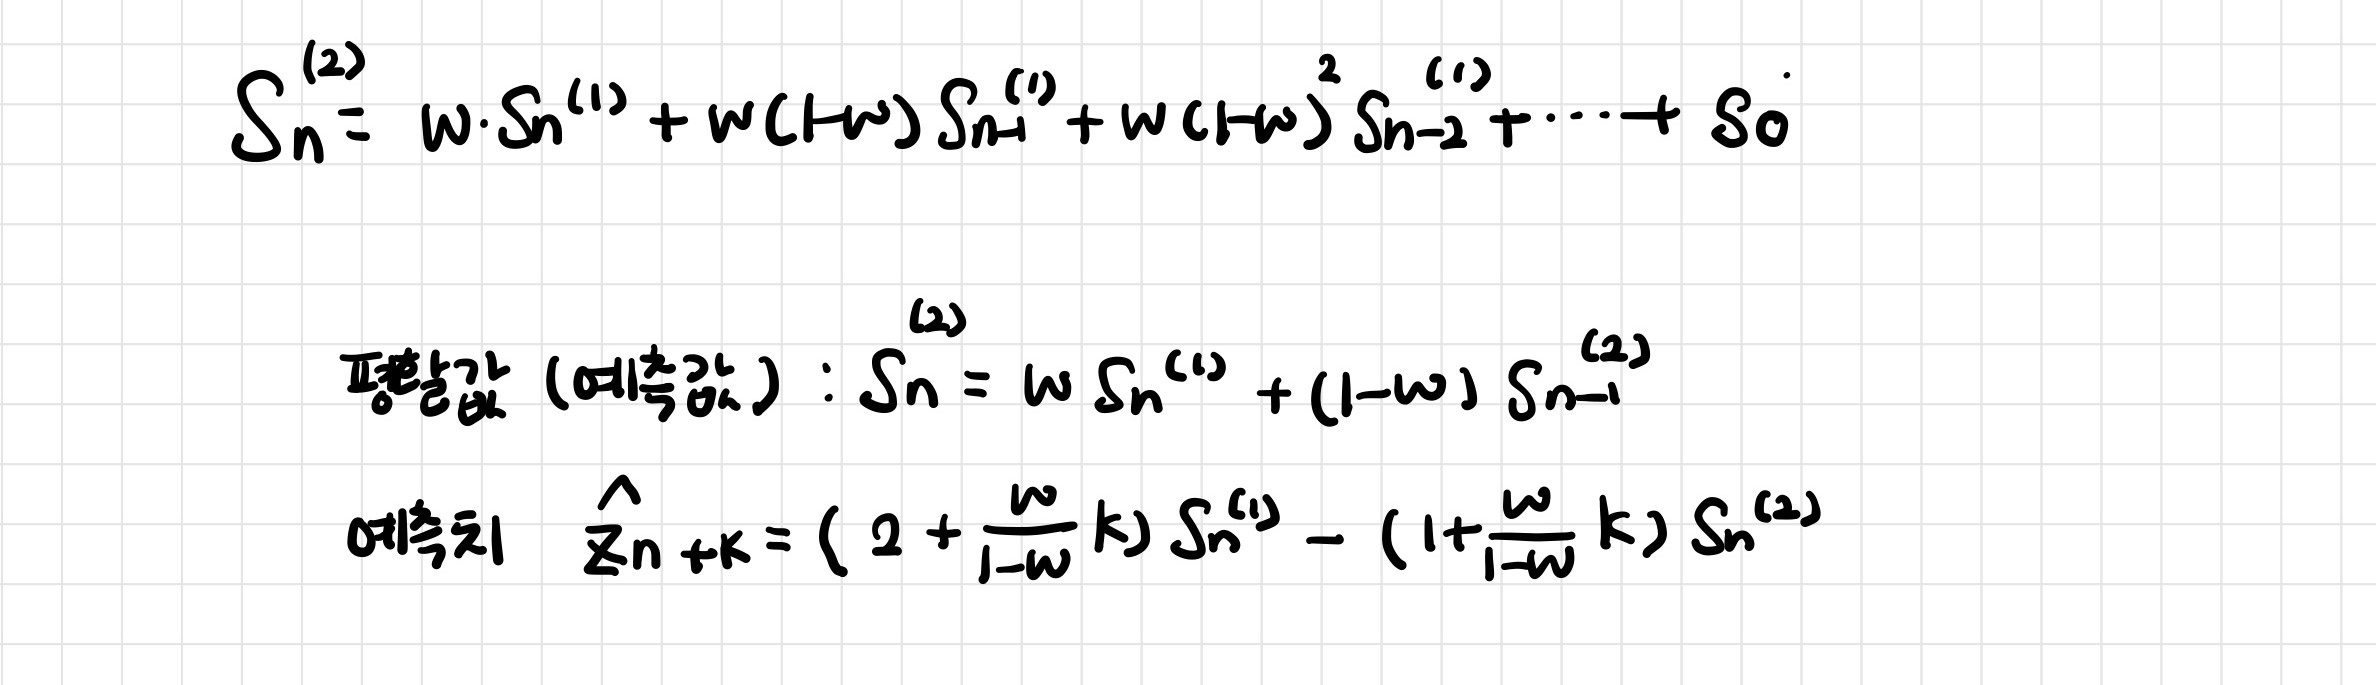 Sn^(2) = w·Sn^(1) + w(1-w) Sn-1^(1) + w(1-w)^2 Sn-2^(1) + ····· + So
평활값 (예측값) : Sn^(2) = w Sn^(1) + (1-w) Sn-1^(2)
예측치 Ẑn+k = (2 + w/(1-w) k) Sn^(1) - (1 + w/(1-w) k) Sn^(2)